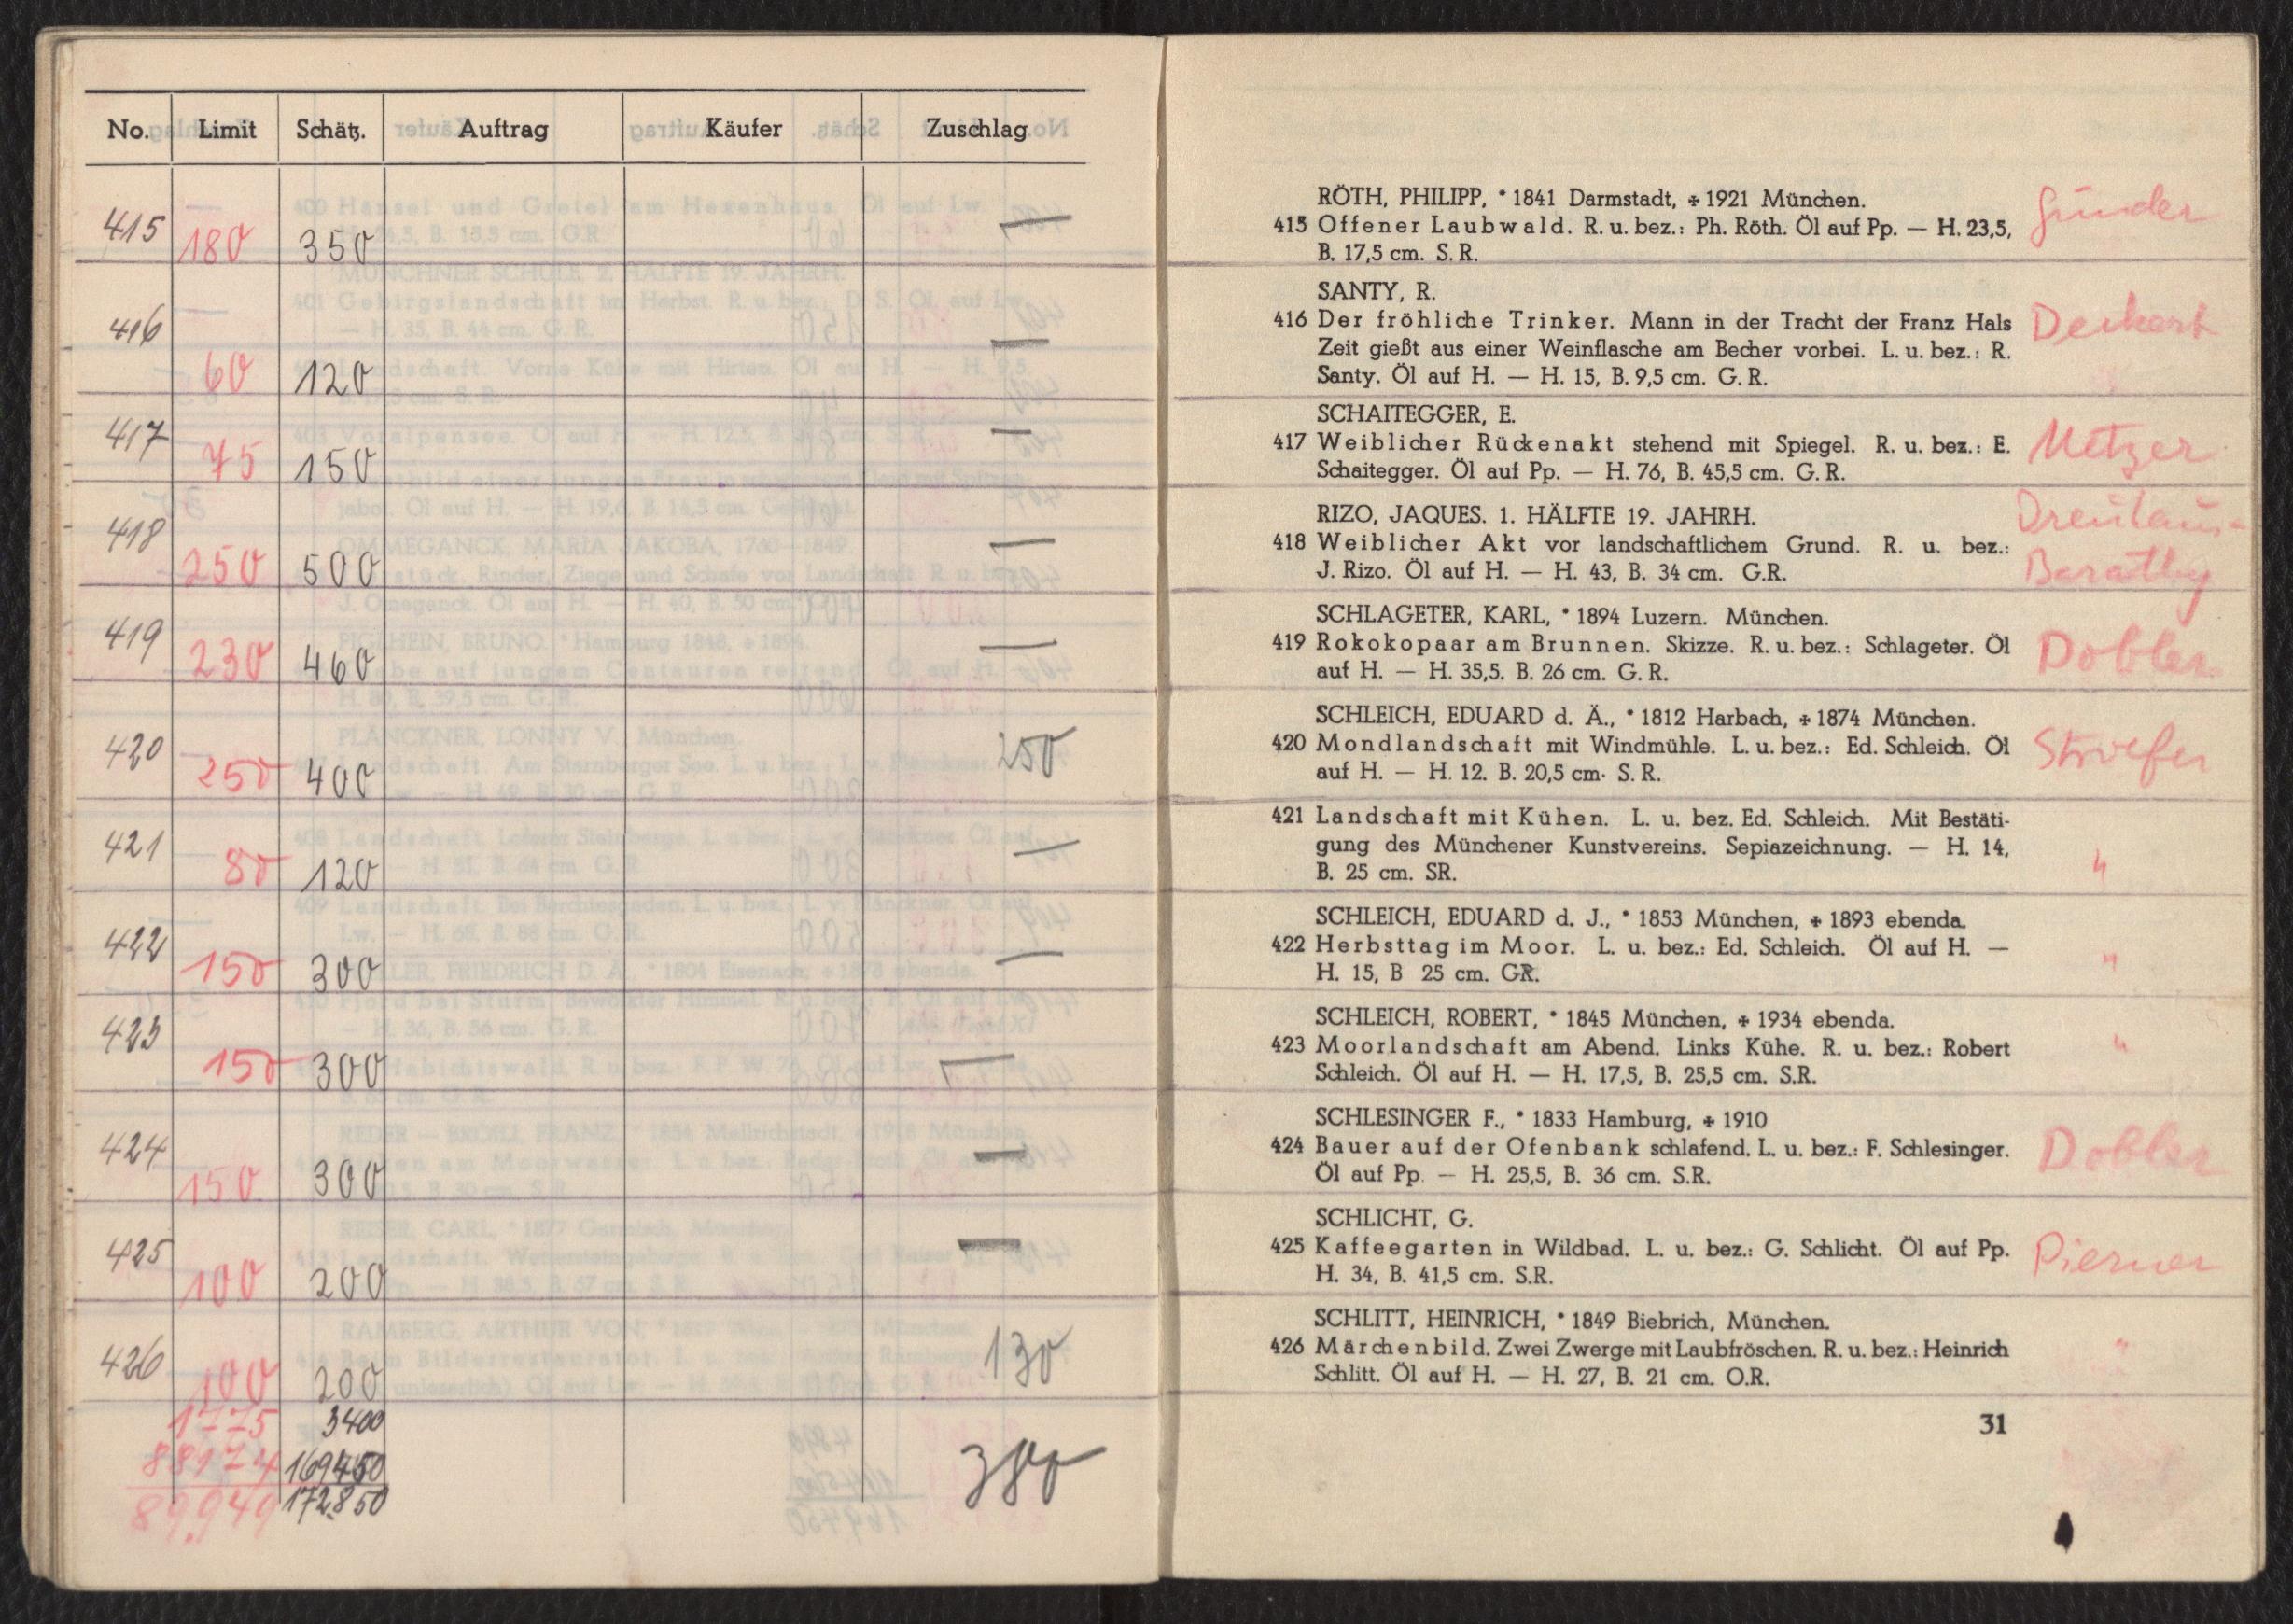 No. Limit Schätz. Auftrag Käufer Zuschlag
415 180 350 —
416 60 120 —
417 75 150 —
418 250 500 —
419 230 460 —
420 250 400 250
421 80 120 —
422 150 300 —
423 150 300 —
424 150 300 —
425 100 200 —
426 100 200 130
1775 3400
88174 169450 380
89.949 172.850
RÖTH, PHILIPP, * 1841 Darmstadt, + 1921 München.
415 Offener Laubwald. R. u. bez.: Ph. Röth. Öl auf Pp. — H. 23,5, Gründer
B. 17,5 cm. S. R.
SANTY, R.
416 Der fröhliche Trinker. Mann in der Tracht der Franz Hals
Zeit gießt aus einer Weinflasche am Becher vorbei. L. u. bez.: R.
Santy. Öl auf H. — H. 15, B. 9,5 cm. G. R.
SCHAITEGGER, E.
417 Weiblicher Rückenakt stehend mit Spiegel. R. u. bez.: E. Metzer
Schaitegger. Öl auf Pp. — H. 76, B. 45,5 cm. G. R.
RIZO, JAQUES. 1. HÄLFTE 19. JAHRH.
418 Weiblicher Akt vor landschaftlichem Grund. R. u. bez.:
J. Rizo. Öl auf H. — H. 43, B. 34 cm. G.R. Barathy
SCHLAGETER, KARL, * 1894 Luzern. München.
419 Rokokopaar am Brunnen. Skizze. R. u. bez.: Schlageter. Öl Dobler
auf H. — H. 35,5. B. 26 cm. G. R.
SCHLEICH, EDUARD d. Ä., * 1812 Harbach, + 1874 München.
420 Mondlandschaft mit Windmühle. L. u. bez.: Ed. Schleich. Öl
auf H. — H. 12. B. 20,5 cm. S. R.
421 Landschaft mit Kühen. L. u. bez. Ed. Schleich. Mit Bestäti-
gung des Münchener Kunstvereins. Sepiazeichnung. — H. 14, "
B. 25 cm. SR.
SCHLEICH, EDUARD d. J., * 1853 München, + 1893 ebenda.
422 Herbsttag im Moor. L. u. bez.: Ed. Schleich. Öl auf H. — "
H. 15, B 25 cm. GR.
SCHLEICH, ROBERT, * 1845 München, + 1934 ebenda.
423 Moorlandschaft am Abend. Links Kühe. R. u. bez.: Robert "
Schleich. Öl auf H. — H. 17,5, B. 25,5 cm. S.R.
SCHLESINGER F., * 1833 Hamburg, + 1910
424 Bauer auf der Ofenbank schlafend. L. u. bez.: F. Schlesinger. Dobler
Öl auf Pp. — H. 25,5, B. 36 cm. S.R.
SCHLICHT, G.
425 Kaffeegarten in Wildbad. L. u. bez.: G. Schlicht. Öl auf Pp. Pierner
H. 34, B. 41,5 cm. S.R.
SCHLITT, HEINRICH, * 1849 Biebrich, München.
426 Märchenbild. Zwei Zwerge mit Laubfröschen. R. u. bez.: Heinrich "
Schlitt. Öl auf H. — H. 27, B. 21 cm. O.R.
31